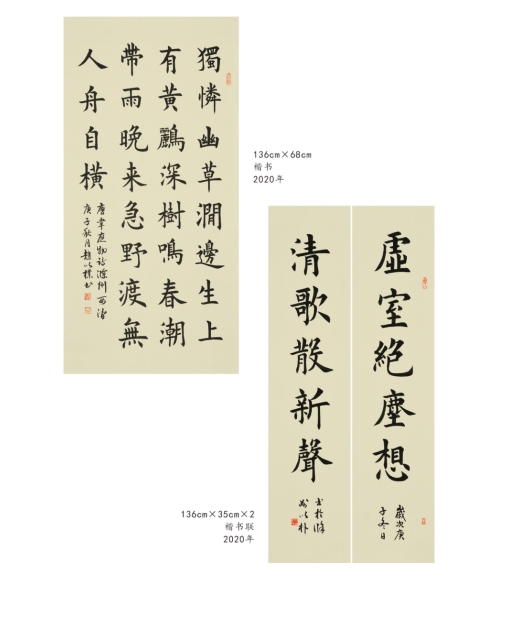 獨憐幽草澗邊生上
有黃鸝深樹鳴春潮
帶雨晚来急野渡無
人舟自橫
唐韋應物詩滁州西澗
庚子秋月趙以樸书
136cm×68cm
楷书
2020年
虛室絕塵想
歲次庚
子冬日
清歌散新聲
书於滁
136cm×35cm×2
楷书联
2020年